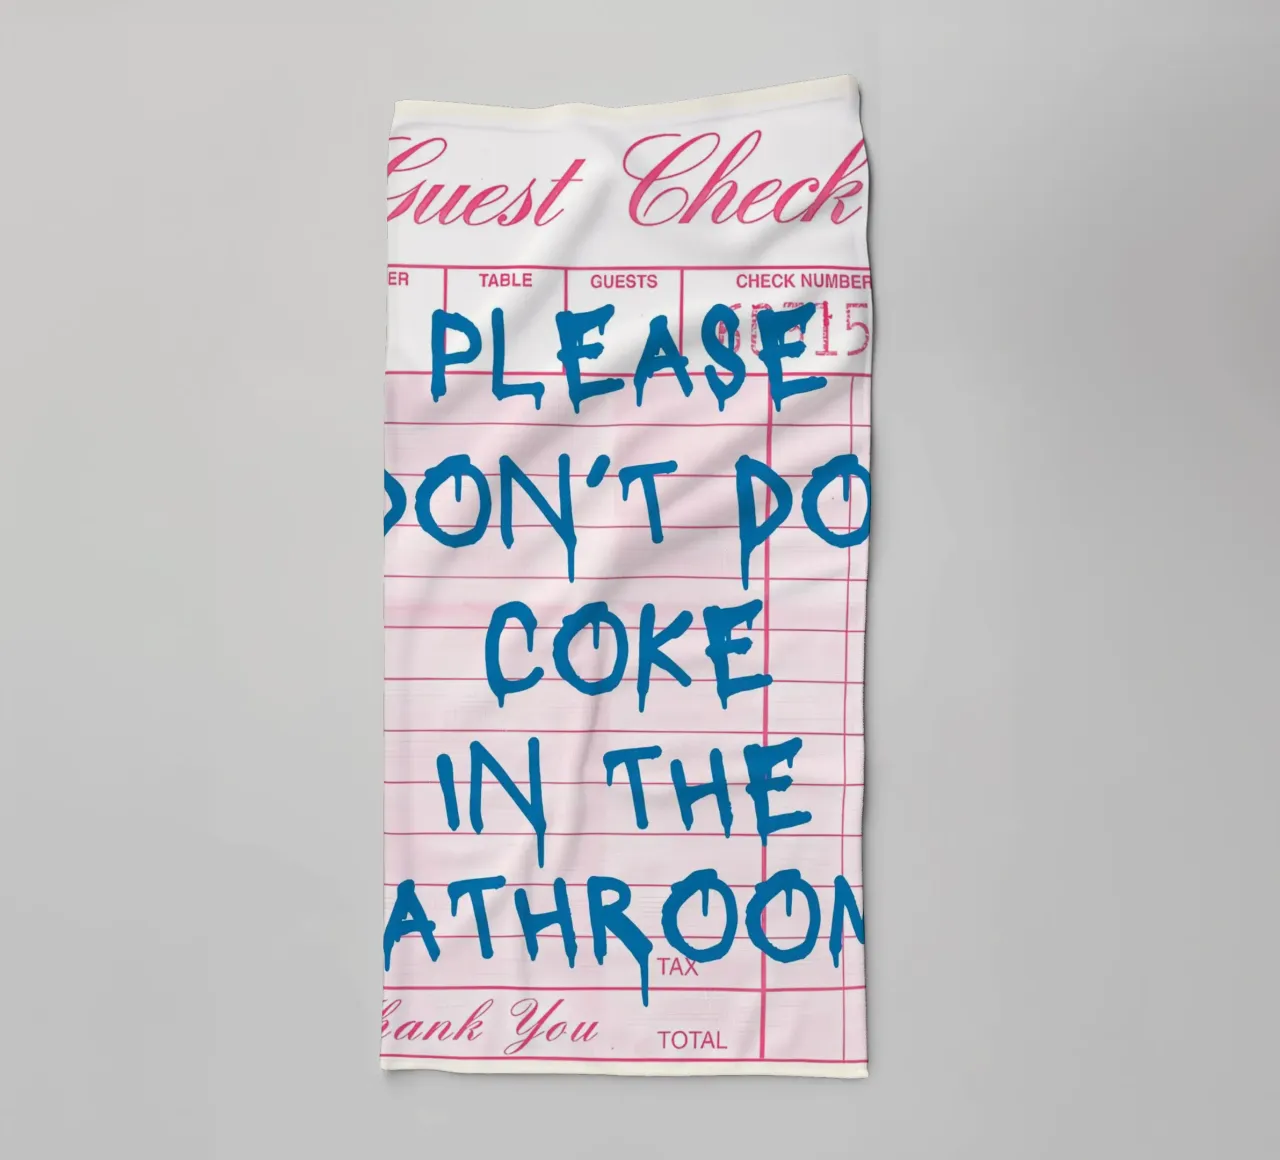 Guest Check
ER TABLE GUESTS CHECK NUMBER
PLEASE
DON'T DO
COKE
IN THE
ATHROOM
TAX
hank You
TOTAL